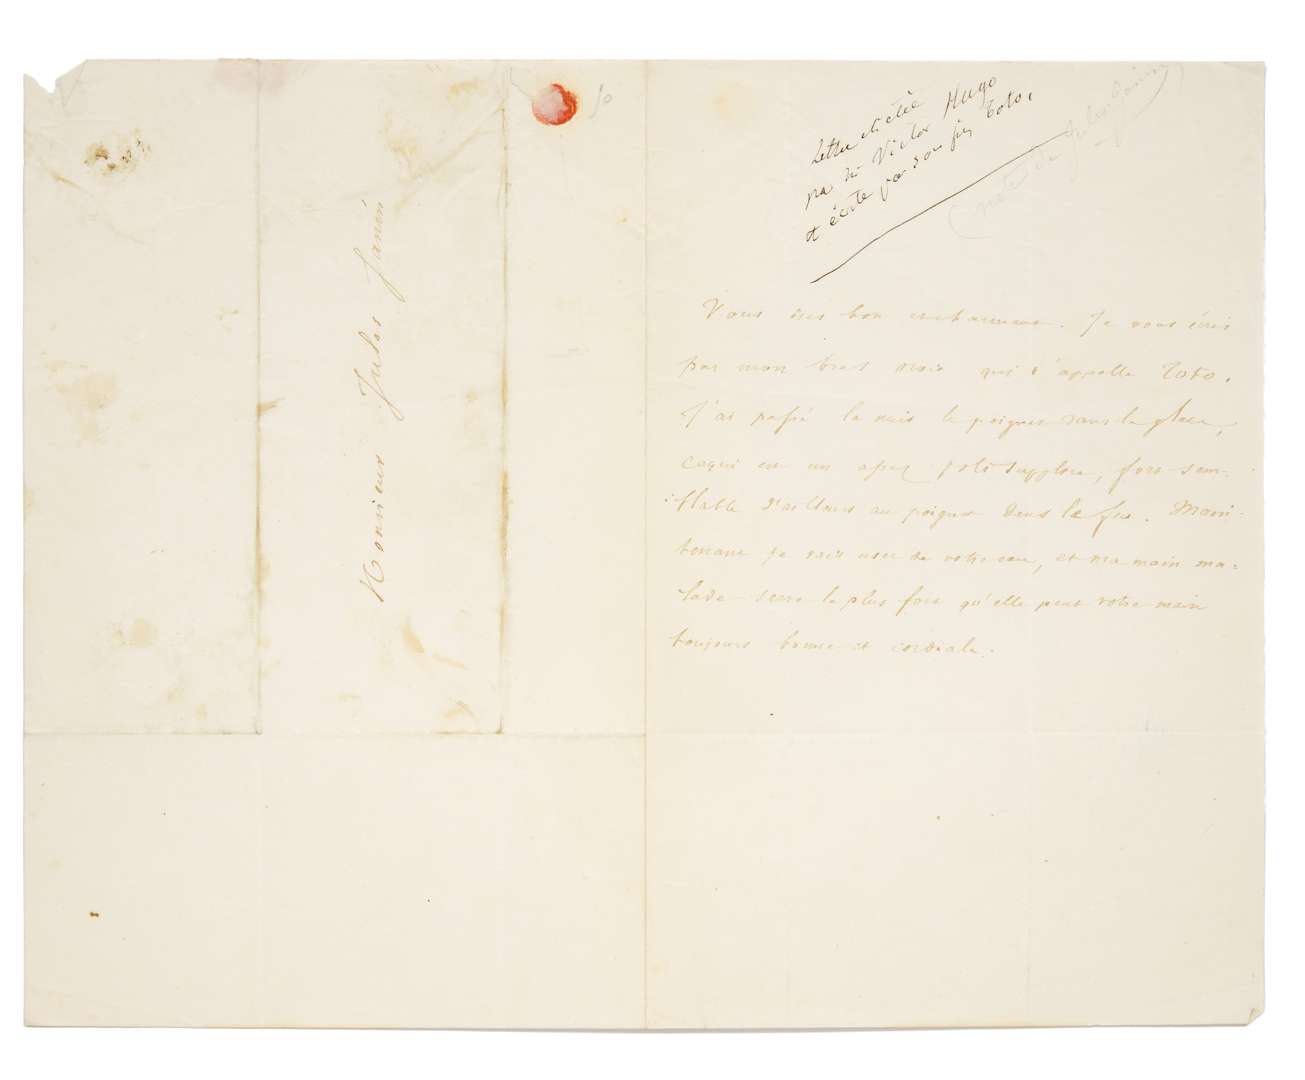 Monsieur Jules Janin
50
Lettre dictée
par Victor Hugo
et écrite par son fils Toto.
(note de Jules Janin)
Vous êtes bon et charmant. Je vous écris
par mon bras droit qui s'appelle Toto.
J'ai passé la nuit le poignet dans la glace,
ce qui est un assez joli supplice, fort sem-
blable d'ailleurs au poignet dans le feu. Main-
tenant je vais user de votre eau, et ma main ma=
lade serre le plus fort qu'elle peut votre main
toujours bonne et cordiale.